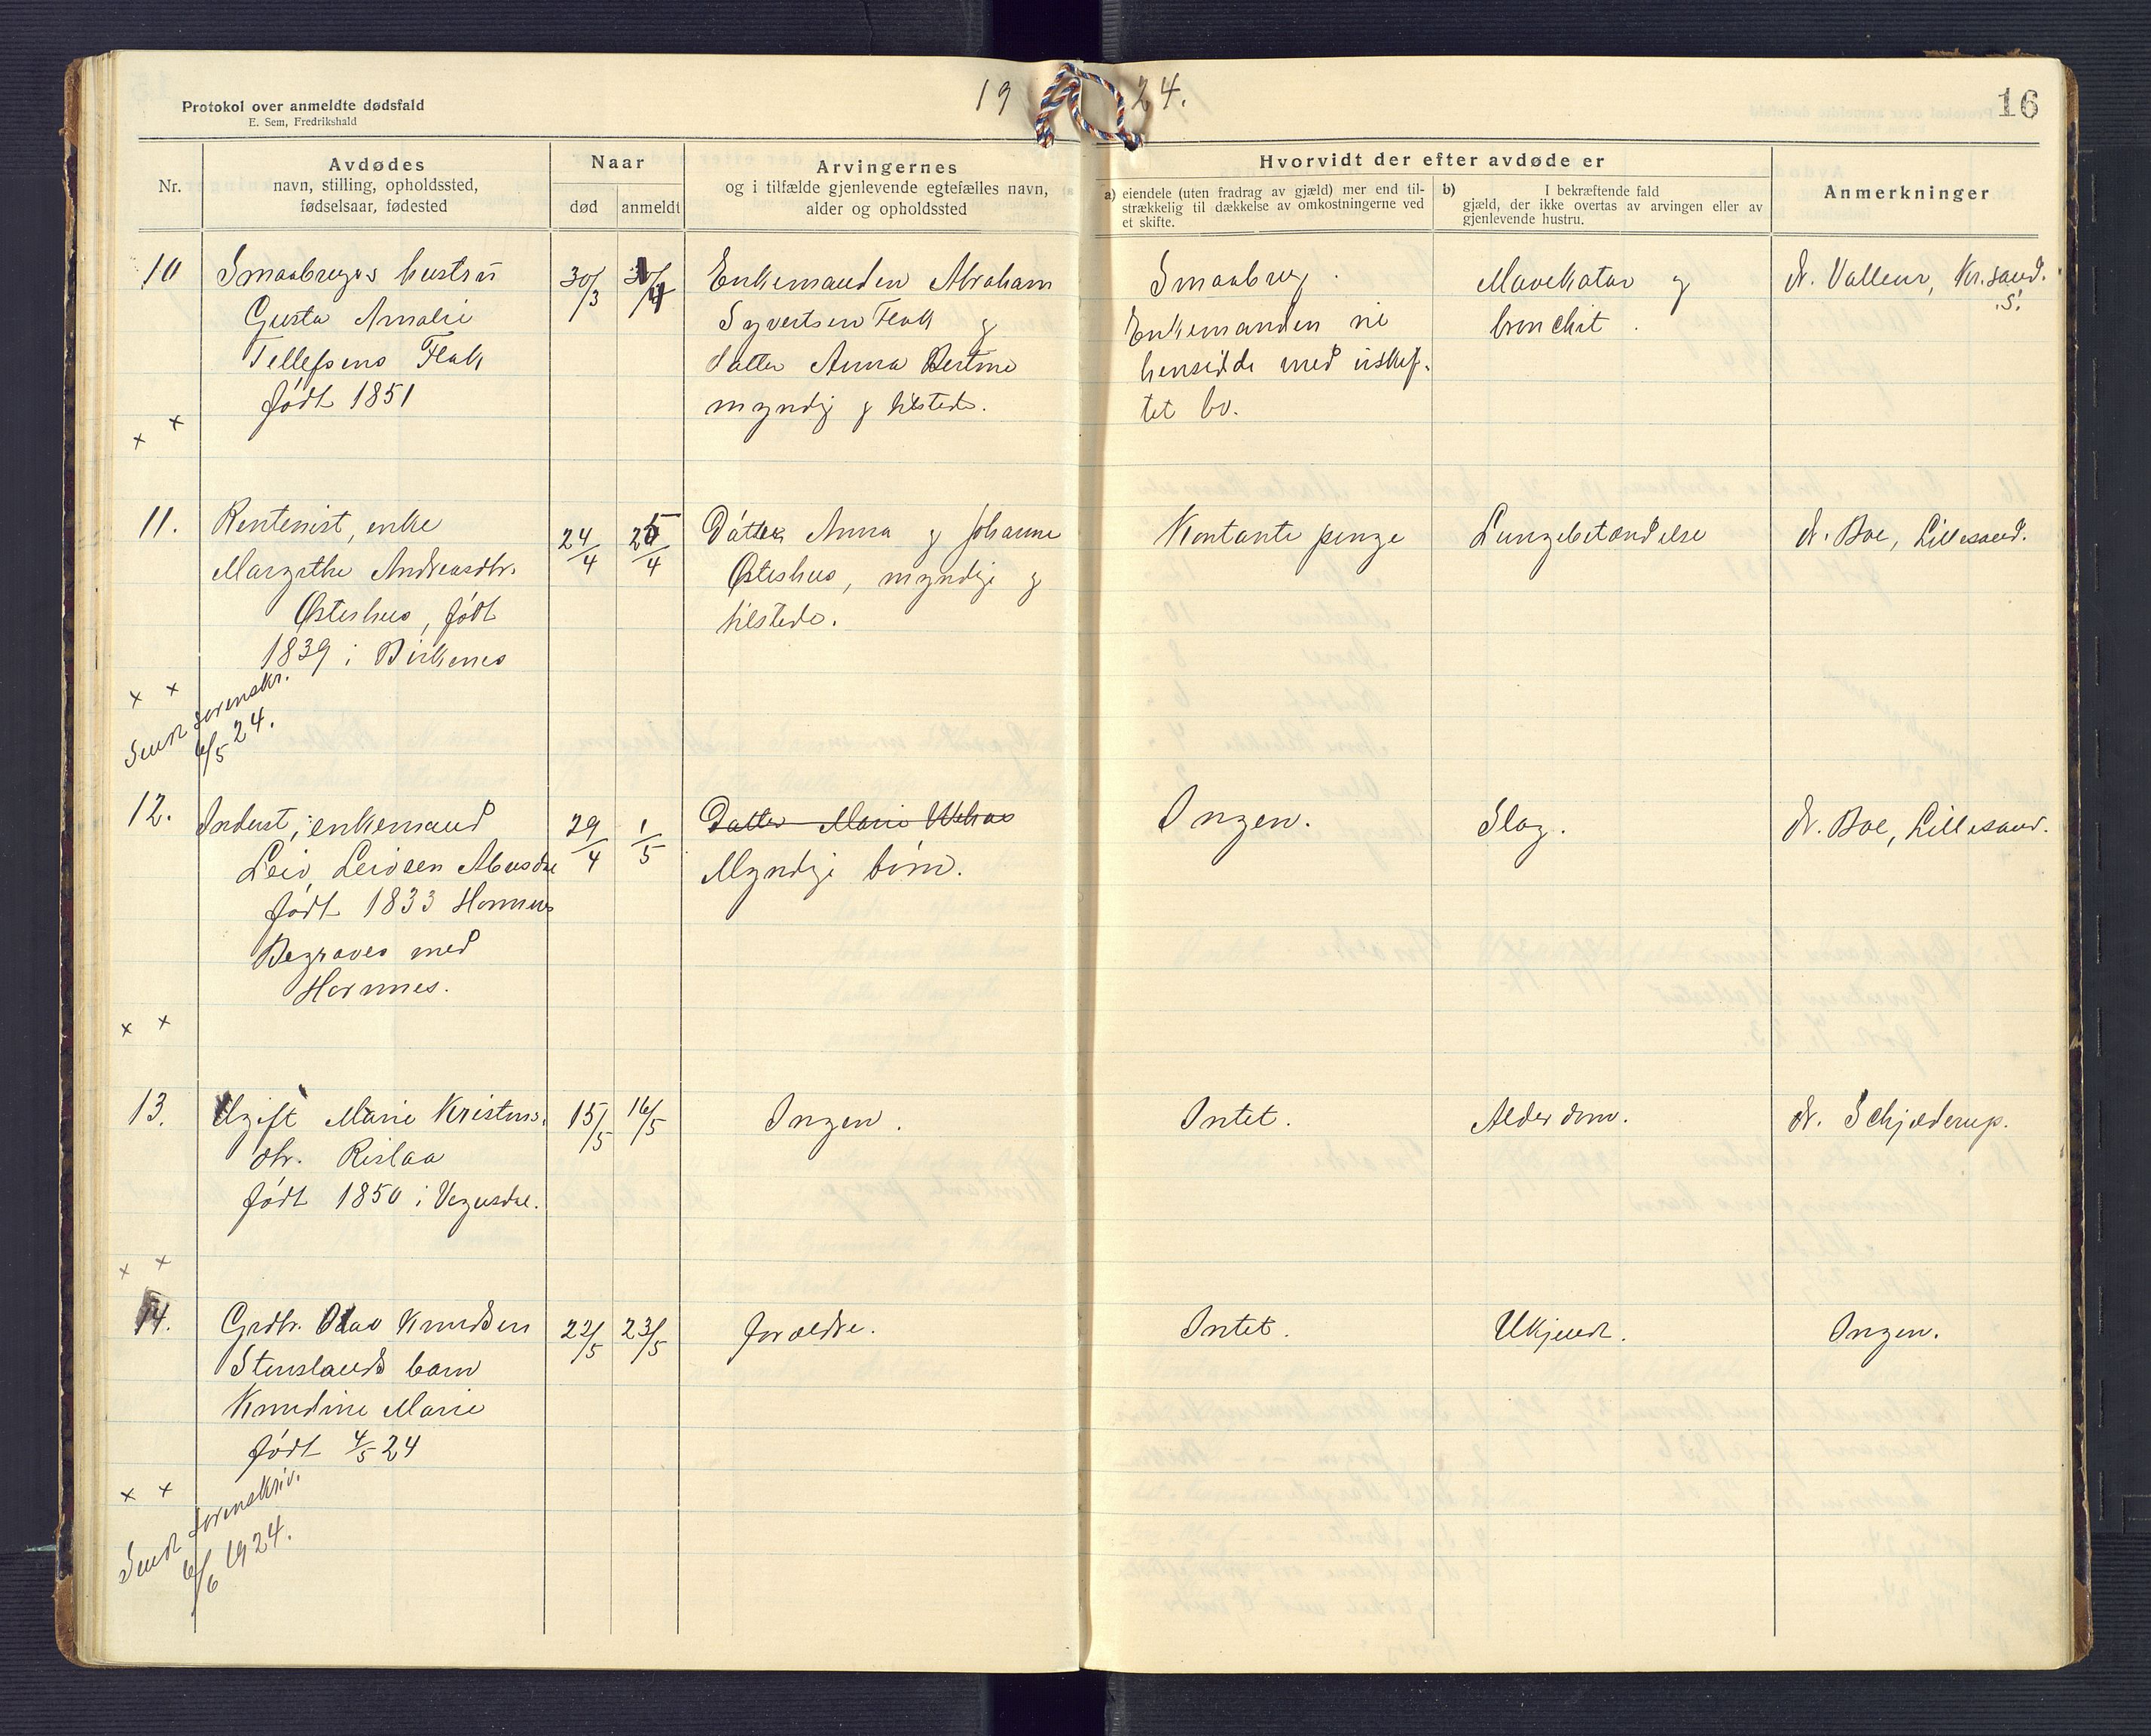 1924.
16
Protokol over anmeldte dødsfald
E. Sem, Fredrikshald
Nr.
Avdødes
navn, stilling, opholdssted,
fødselsaar, fødested
Naar
død
anmeldt
Arvingernes
og i tilfælde gjenlevende egtefælles navn,
alder og opholdssted
Hvorvidt der efter avdøde er
a) eiendele (uten fradrag av gjæld) mer end til-
strækkelig til dækkelse av omkostningerne ved
et skifte.
b) I bekræftende fald
gjæld, der ikke overtas av arvingen eller av
gjenlevende hustru.
Anmerkninger
10
Smaabrugers hustru
Gusta Amalie
Tellefsens Flak
født 1851
30/3
/4
Enkemanden Abraham
Syvertsen Flak og
datter Anna Bertine
myndig og tilstede.
Smaabrug.
Enkemanden vil
hensidde med uskif-
tet bo.
Mavekatar og
bronchit.
dr. Valleur, Kr.sand.
S.
x x
11.
Rentenist, enke
Margrethe Andreasdtr.
Østerhus, født
1839 i Birkenes
24/4
25/4
Døttre Anna og Johanne
Østerhus, myndige og
tilstede.
Kontante penge
Lungebetændelse
dr. Boe, Lillesand.
x x
Sendt sorenskr.
6/5 24.
12.
Inderst, enkemand
Leiv Leivsen Abusdal
født 1833 Hornnes
Begraves med
Hornnes.
29/4
1/5
Datter Marie
Myndige børn.
Ingen.
Slag.
dr. Boe, Lillesand.
x x
13.
Ugift Marie Kristens.
dtr. Rislaa
født 1850 i Vegusdal.
15/5
16/5
Ingen.
Intet.
Alderdom.
dr. Schjelderup.
x x
14.
Grdbr. Olav Knudsen
Stenslands barn
Knudine Marie
født 4/5 24
22/5
23/5
foreldre.
Intet.
Ukjendt.
Ingen.
x x
Sendt sorenskriv.
6/6 1924.